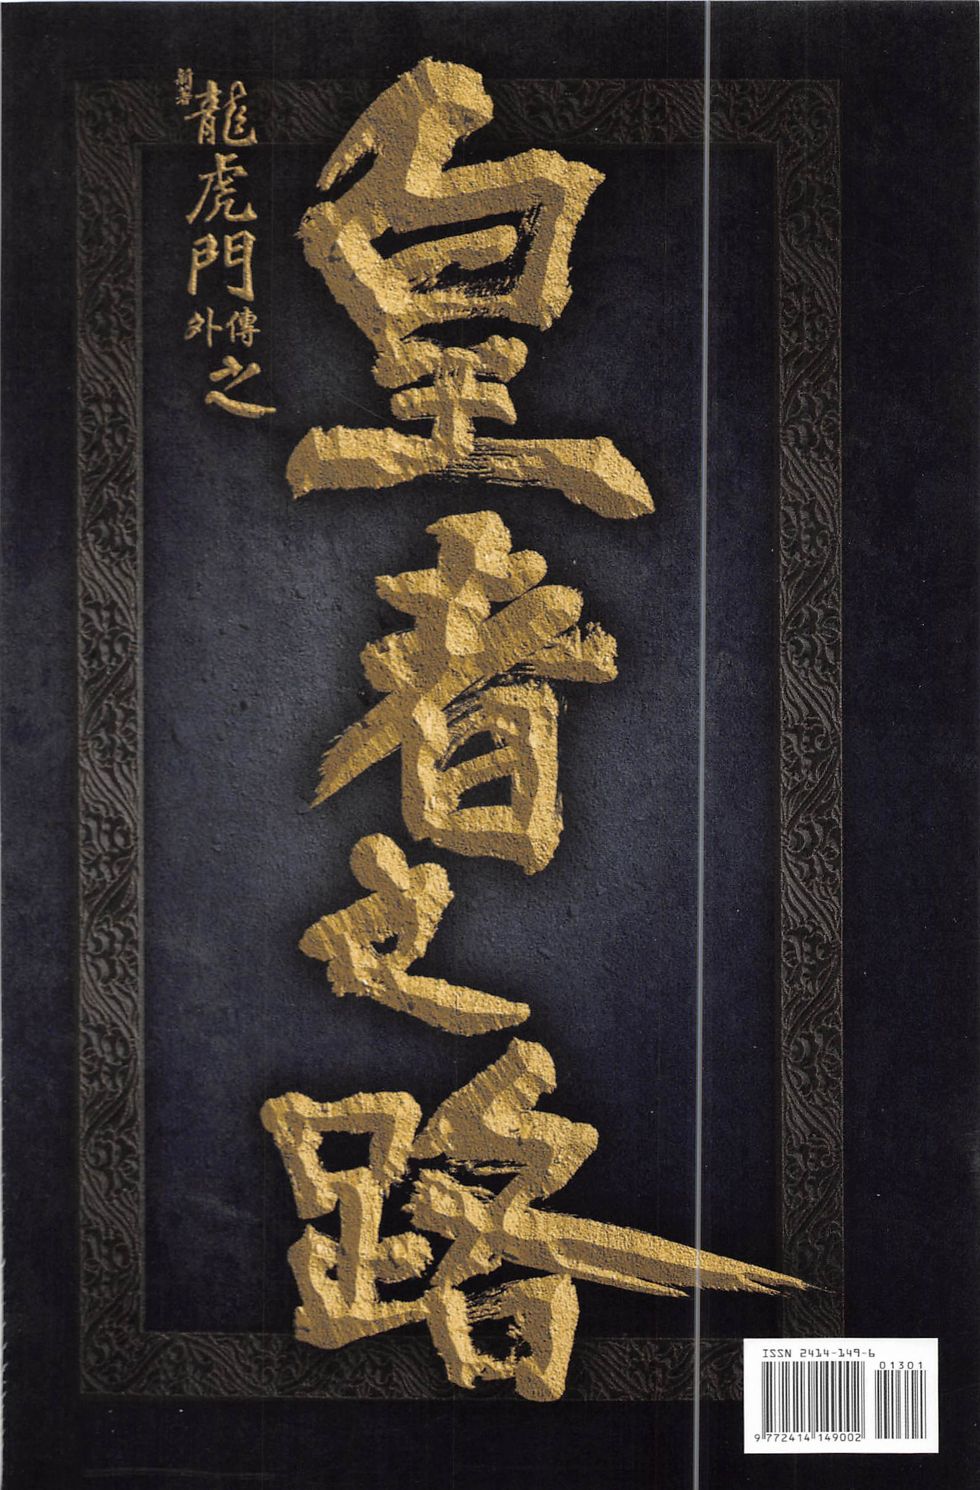 新著
龍虎門
外傳
之
皇者之路
ISSN 2414-149-6
01301
9 772414 149002